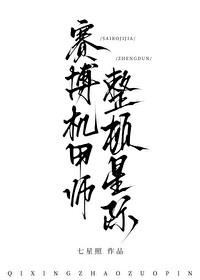 赛博机甲师
/SAIBOJIJIA/
/ZHENGDUN/
整顿星际
七星照 作品
QIXINGZHAOZUOPIN